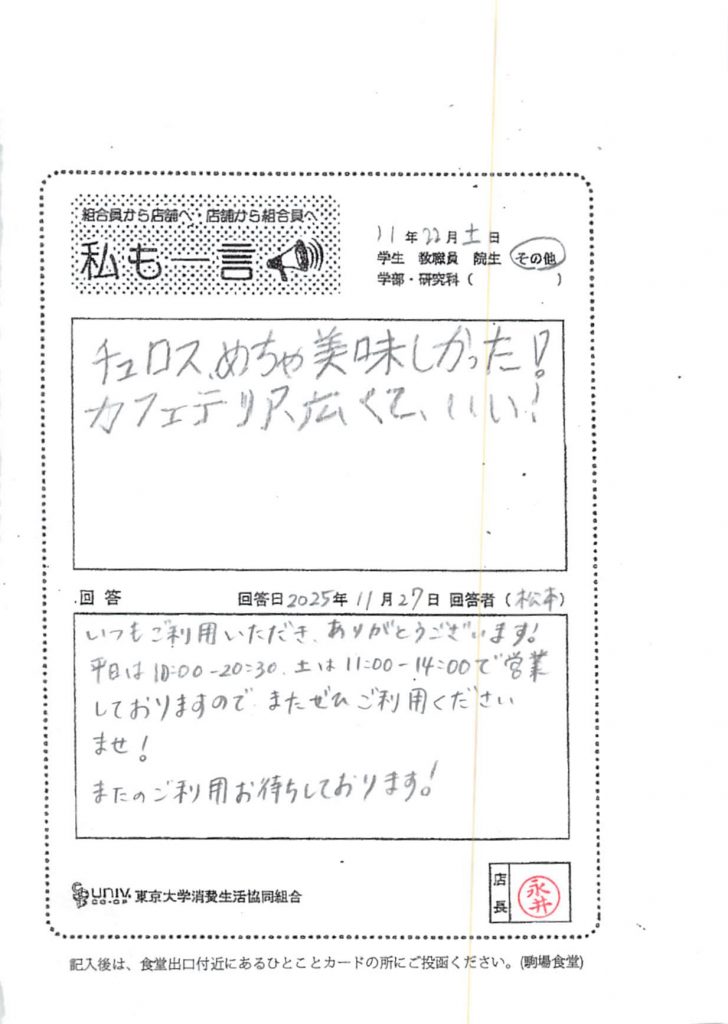 組合員から店舗へ・店舗から組合員へ
私も一言
11年22月土日
学生 教職員 院生 その他
学部・研究科( )
チュロス、めちゃ美味しかった!
カフェテリア、広くて、いい!
回答 回答日2025年11月27日 回答者(松本)
いつもご利用いただき、ありがとうございます!
平日は10:00-20:30、土は11:00-14:00で営業
しておりますので、またぜひご利用ください
ませ!
またのご利用お待ちしております!
UNIV.
CO-OP
東京大学消費生活協同組合
店長
永井
記入後は、食堂出口付近にあるひとことカードの所にご投函ください。(駒場食堂)